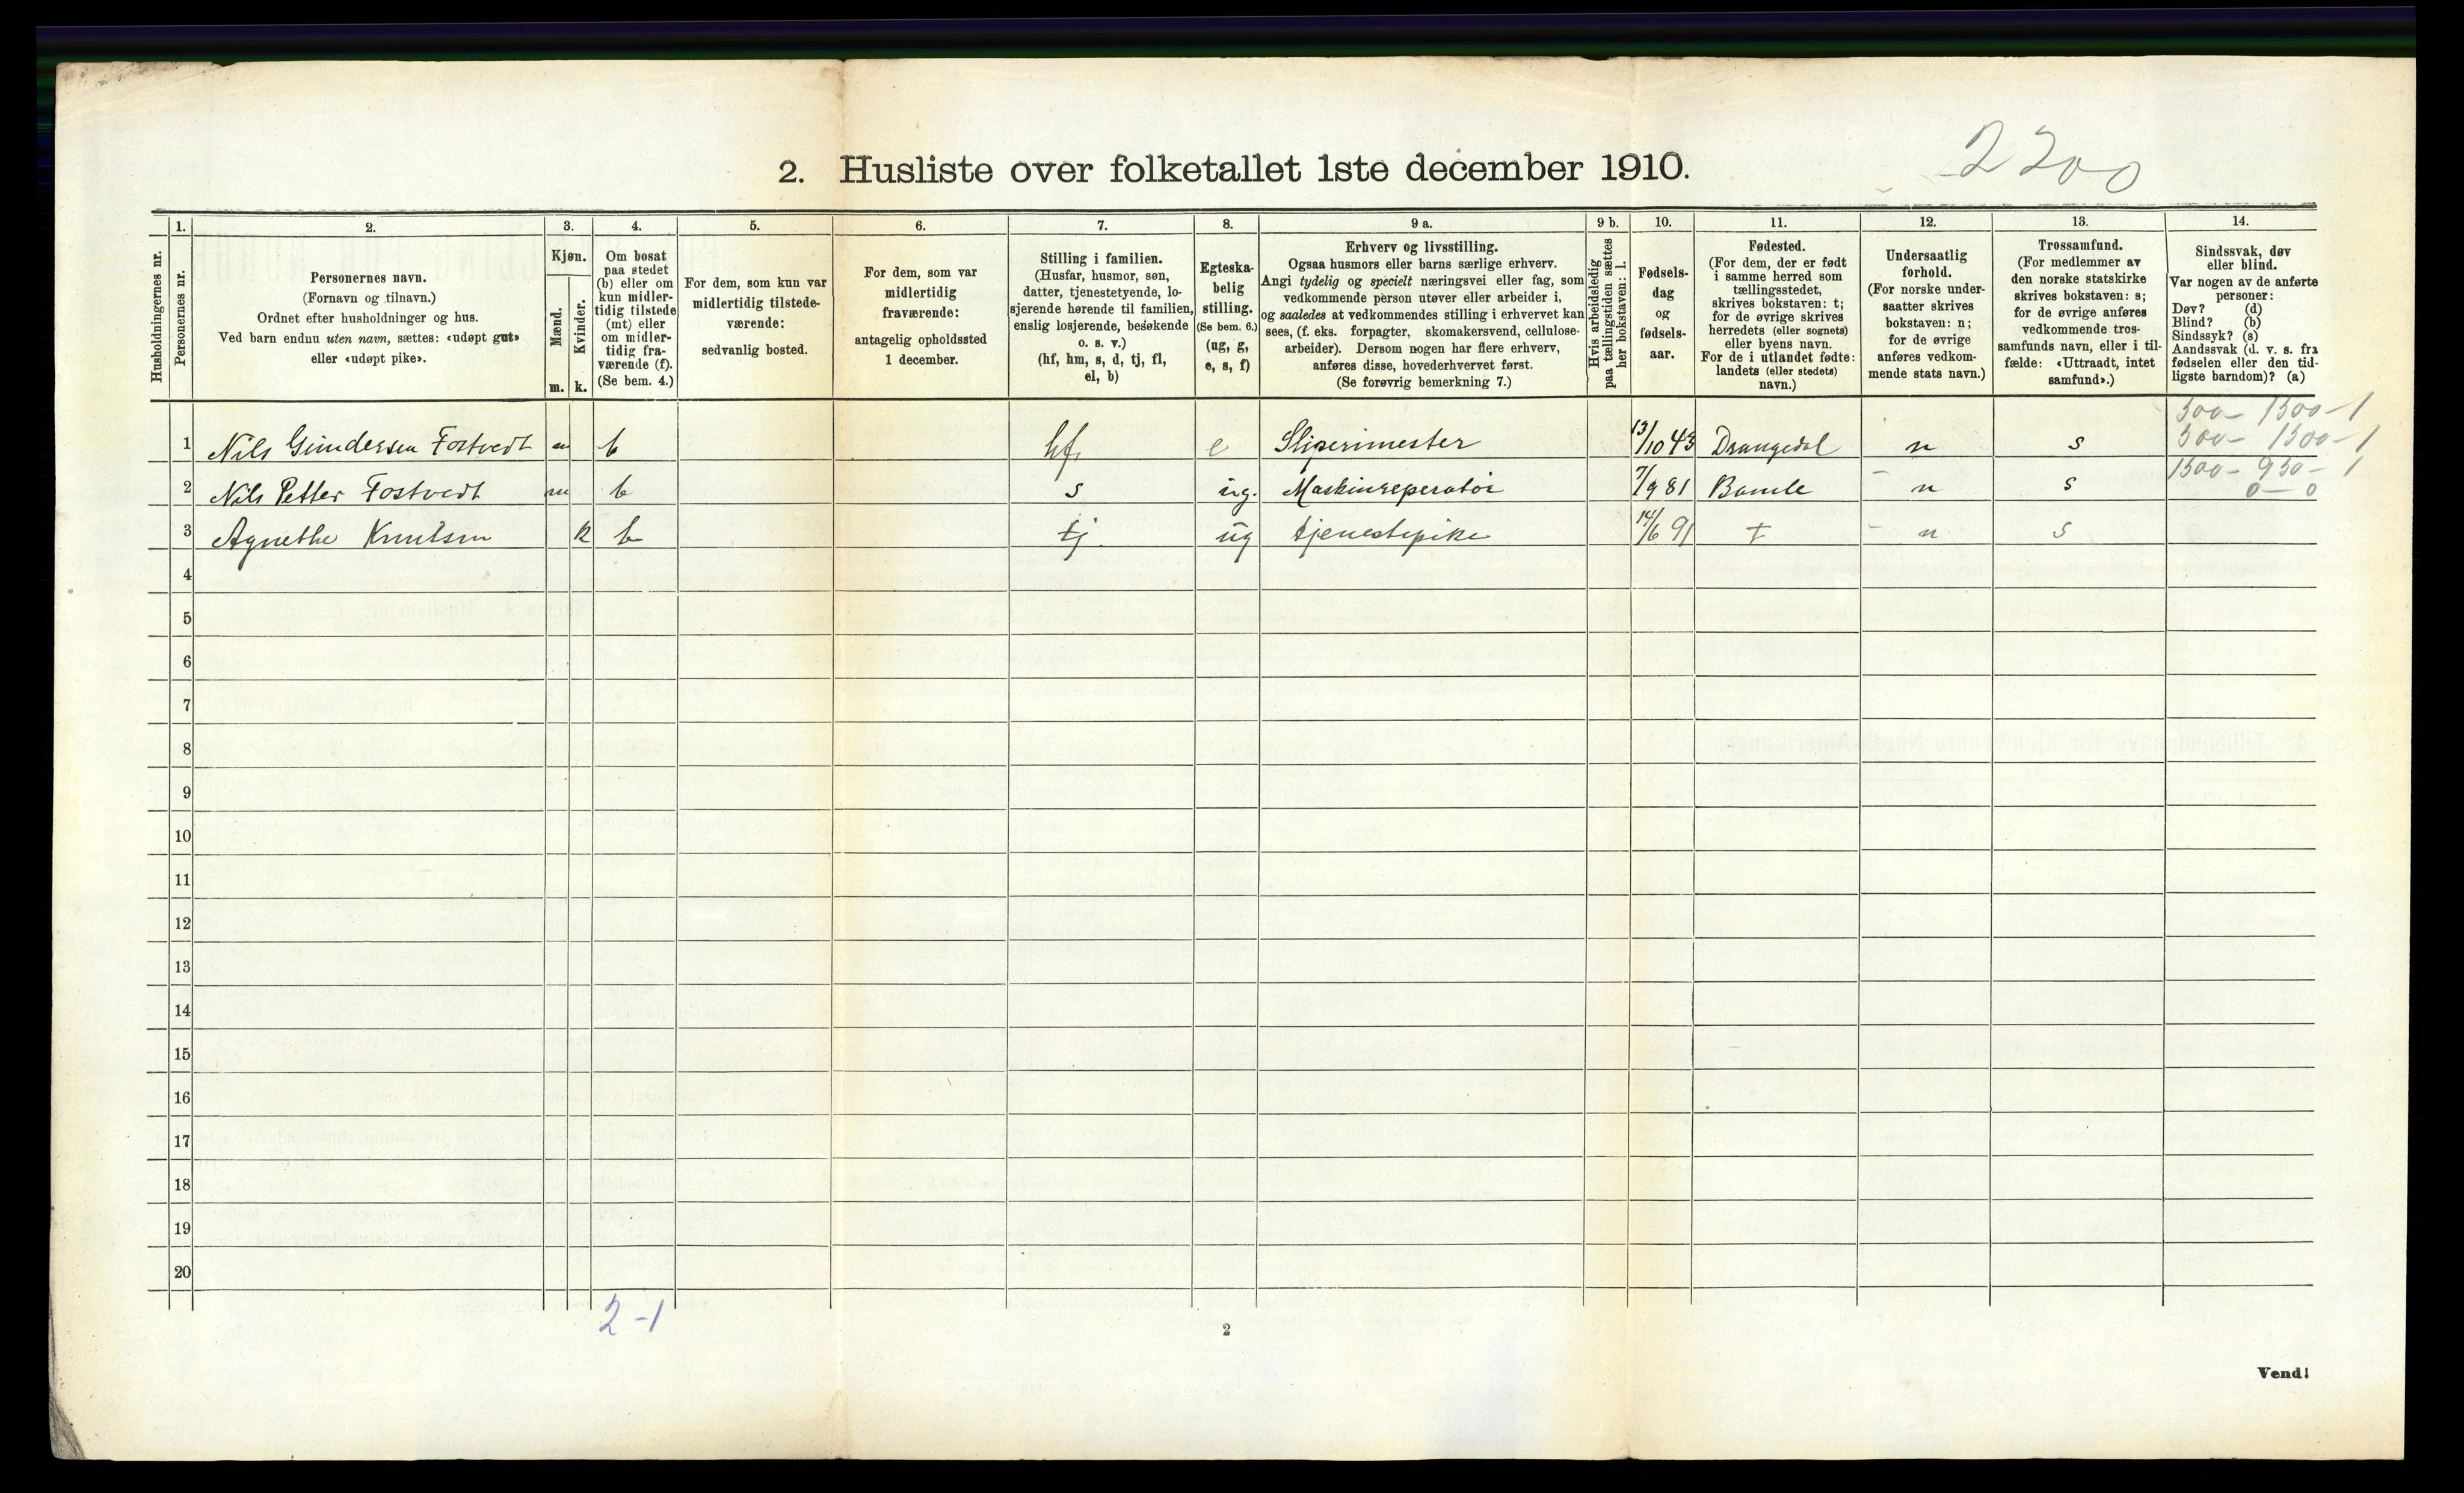 2. Husliste over folketallet 1ste december 1910.
2200
Husholdningernes nr.
1.
Personernes nr.
2.
Personernes navn.
(Fornavn og tilnavn.)
Ordnet efter husholdninger og hus.
Ved barn endnu uten navn, sættes: «udøpt gut»
eller «udøpt pike».
3.
Kjøn.
Mænd.
Kvinder.
m. k.
4.
Om bosat
paa stedet
(b) eller om
kun midler-
tidig tilstede
(mt) eller
om midler-
tidig fra-
værende (f).
(Se bem. 4.)
5.
For dem, som kun var
midlertidig tilstede-
værende:
sedvanlig bosted.
6.
For dem, som var
midlertidig
fraværende:
antagelig opholdssted
1 december.
7.
Stilling i familien.
(Husfar, husmor, søn,
datter, tjenestetyende, lo-
sjerende hørende til familien,
enslig losjerende, besøkende
o. s. v.)
(hf, hm, s, d, tj, fl,
el, b)
8.
Egteska-
belig
stilling.
(Se bem. 6.)
(ug, g,
e, s, f)
9 a.
Erhverv og livsstilling.
Ogsaa husmors eller barns særlige erhverv.
Angi tydelig og specielt næringsvei eller fag, som
vedkommende person utøver eller arbeider i,
og saaledes at vedkommendes stilling i erhvervet kan
sees, (f. eks. forpagter, skomakersvend, cellulose-
arbeider). Dersom nogen har flere erhverv,
anføres disse, hovederhvervet først.
(Se forøvrig bemerkning 7.)
9 b.
Hvis arbeidsledig
paa tællingstiden sættes
her bokstaven: l.
10.
Fødsels-
dag
og
fødsels-
aar.
11.
Fødested.
(For dem, der er født
i samme herred som
tællingsstedet,
skrives bokstaven: t;
for de øvrige skrives
herredets (eller sognets)
eller byens navn.
For de i utlandet fødte:
landets (eller stedets)
navn.)
12.
Undersaatlig
forhold.
(For norske under-
saatter skrives
bokstaven: n;
for de øvrige
anføres vedkom-
mende stats navn.)
13.
Trossamfund.
(For medlemmer av
den norske statskirke
skrives bokstaven: s;
for de øvrige anføres
vedkommende tros-
samfunds navn, eller i til-
fælde: «Uttraadt, intet
samfund».)
14.
Sindssvak, døv
eller blind.
Var nogen av de anførte
personer:
Døv? (d)
Blind? (b)
Sindssyk? (s)
Aandssvak (d. v. s. fra
fødselen eller den tid-
ligste barndom)? (a)
500 – 1500 – 1
1 Nils Gundersen Fostvedt m b hf e Sliperimester 13/10 43 Drangedal n s 500 – 1500 – 1
2 Nils Petter Fostvedt m b s ug. Maskinreperatør 7/9 81 Bamle n s 1500 – 950 – 1
0 – 0
3 Agnethe Knutsen k b tj. ug tjenestepike 14/6 91 t n s
4
5
6
7
8
9
10
11
12
13
14
15
16
17
18
19
20
2-1
2
Vend!